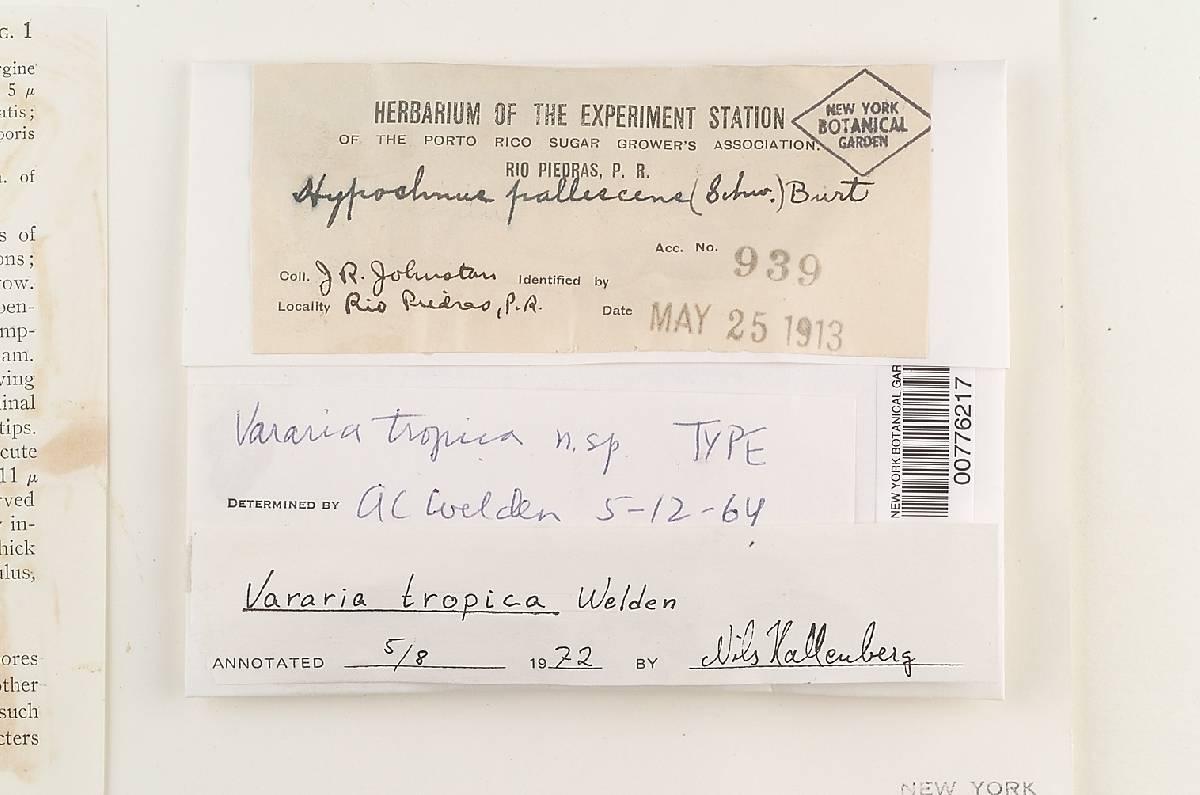 c. 1
5 µ
of
s of
ons;
ow.
am.
tips.
11 µ
in-
ores
such
HERBARIUM OF THE EXPERIMENT STATION
OF THE PORTO RICO SUGAR GROWER'S ASSOCIATION.
RIO PIEDRAS, P. R.
NEW YORK
BOTANICAL
GARDEN
Hypochnus pallescens (Schw.) Burt
Acc. No. 939
Coll. J R. Johnston Identified by
Locality Rio Piedras, P.R. Date MAY 25 1913
Vararia tropica n.sp. TYPE
DETERMINED BY AC Welden 5-12-64
NEW YORK BOTANICAL GAR
00776217
Vararia tropica Welden
ANNOTATED 5/8 1972 BY Nils Hallenberg
NEW YORK